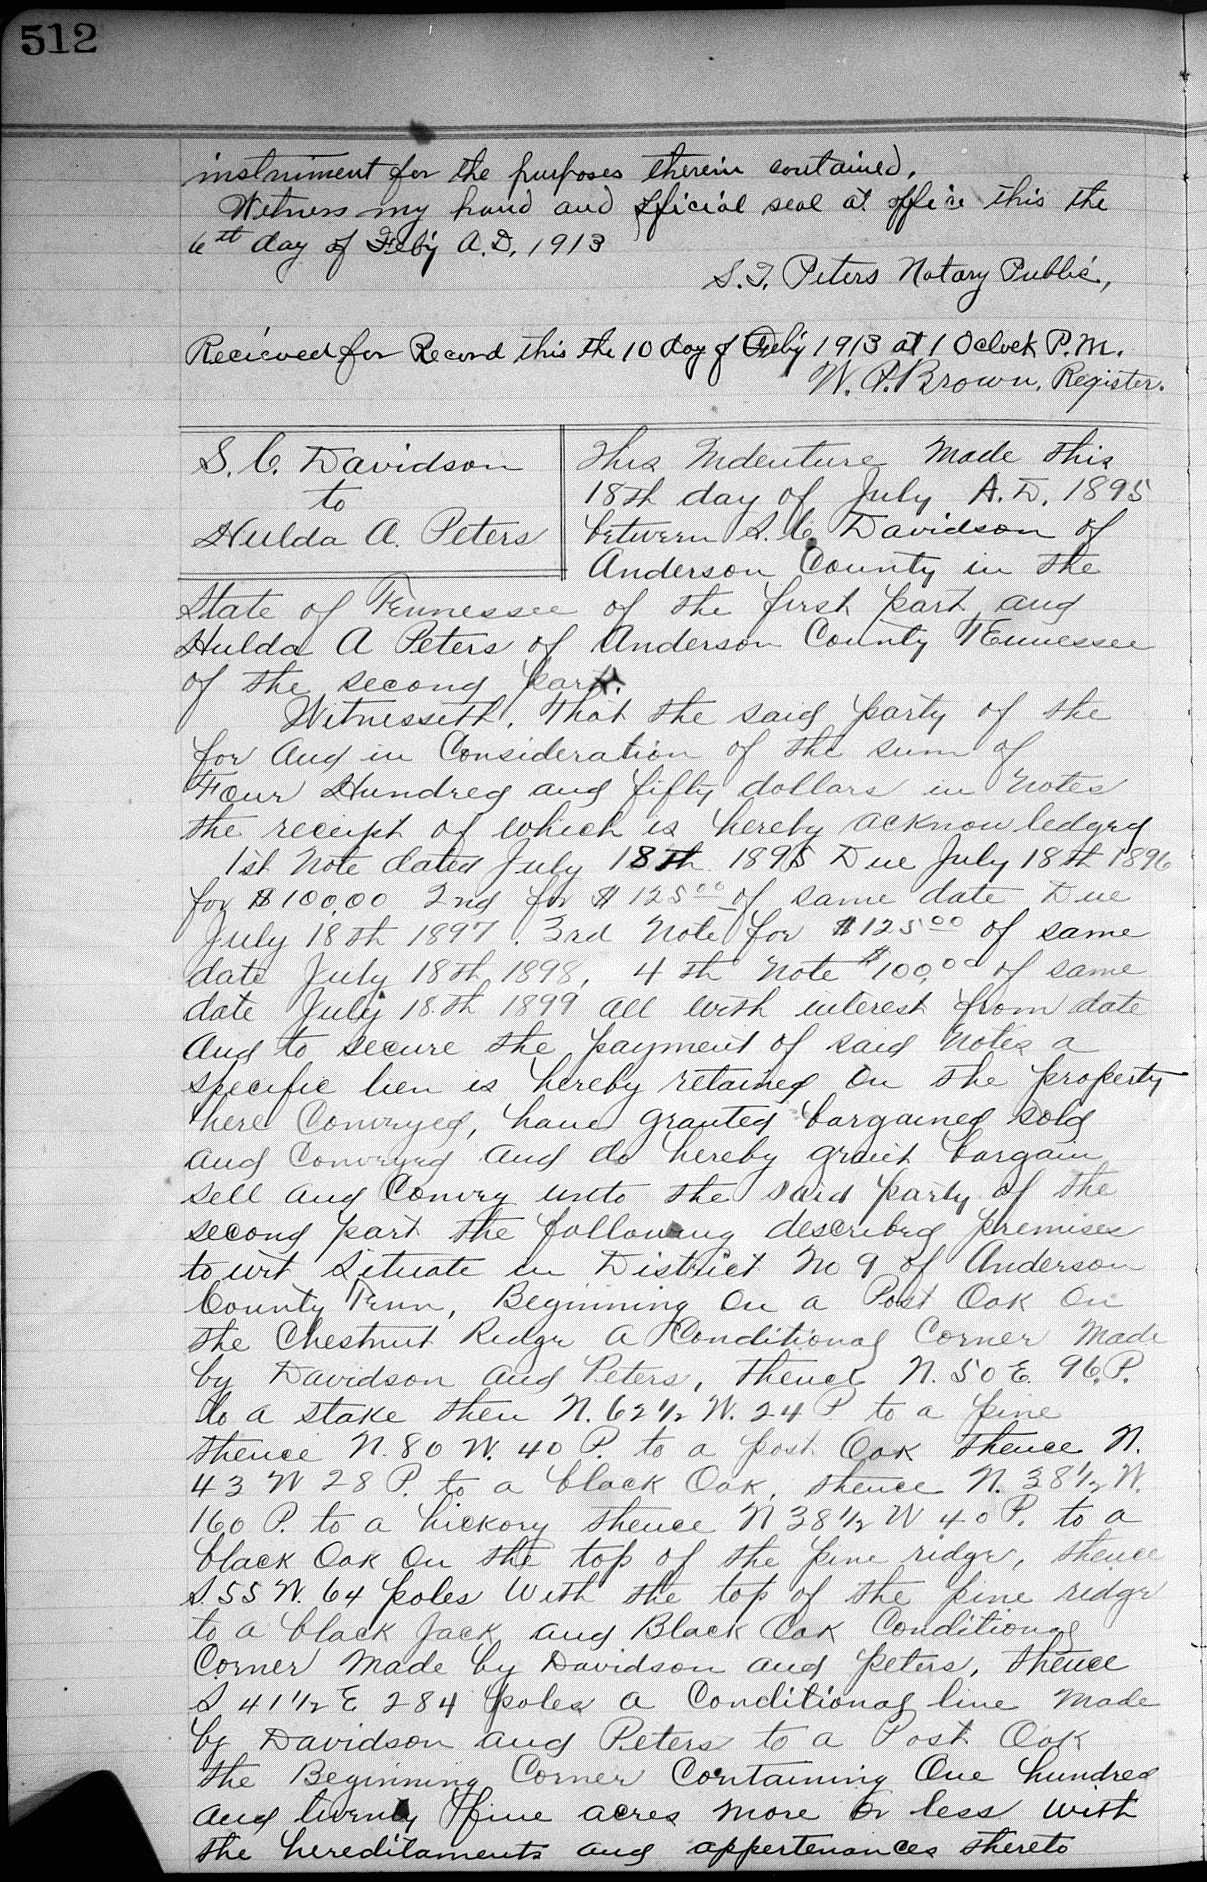 512
instrument for the purposes therein contained.
Witness my hand and official seal at office this the
6th day of Feby A.D. 1913
S.T. Peters Notary Public,
Recieved for Record this the 10 day of Feby 1913 at 1 Oclock P.M.
W. P. Brown, Register.
S. C. Davidson
to
Hulda A. Peters
This Indenture Made this
18th day of July A.D. 1895
between S. C. Davidson of
Anderson County in the
State of Tennessee of the first part and
Hulda A Peters of Anderson County Tennessee
of the second part.
Witnesseth. That the said party of the
for and in Consideration of the sum of
Four Hundred and fifty dollars in Notes
the receipt of which is hereby acknowledged
1st Note dated July 18th 1895 Due July 18th 1896
for $100.00 2nd for $125 00 of same date Due
July 18th 1897. 3rd Note for $125 00 of same
date July 18th 1898, 4th Note $100,00 of same
date July 18th 1899 all with interest from date
and to secure the payment of said Notes a
specific lien is hereby retained on the property
here Conveyed, have granted bargained sold
and Conveyed and do hereby grant bargain
sell and Convey unto the said party of the
second part the following described premises
to wit Situate in District No 9 of Anderson
County Tenn, Beginning On a Post Oak On
the Chestnut Ridge a Conditional Corner Made
by Davidson and Peters, thence N. 50 E. 96.P.
to a stake then N. 62 1/2 W. 24 P to a pine
thence N. 80 W. 40 P. to a post Oak thence N.
43 W 28 P. to a black Oak, thence N. 38 1/2 W.
160 P. to a hickory thence N 38 1/2 W 40 P. to a
black Oak On the top of the pine ridge, thence
S.55 W. 64 poles with the top of the pine ridge
to a black Jack and Black Oak Conditional
Corner Made by Davidson and Peters, thence
S 41 1/2 E 284 poles a Conditional line Made
by Davidson and Peters to a Post Oak
the Beginning Corner Containing One hundred
and twenty five acres more or less with
the hereditaments and appertenances thereto